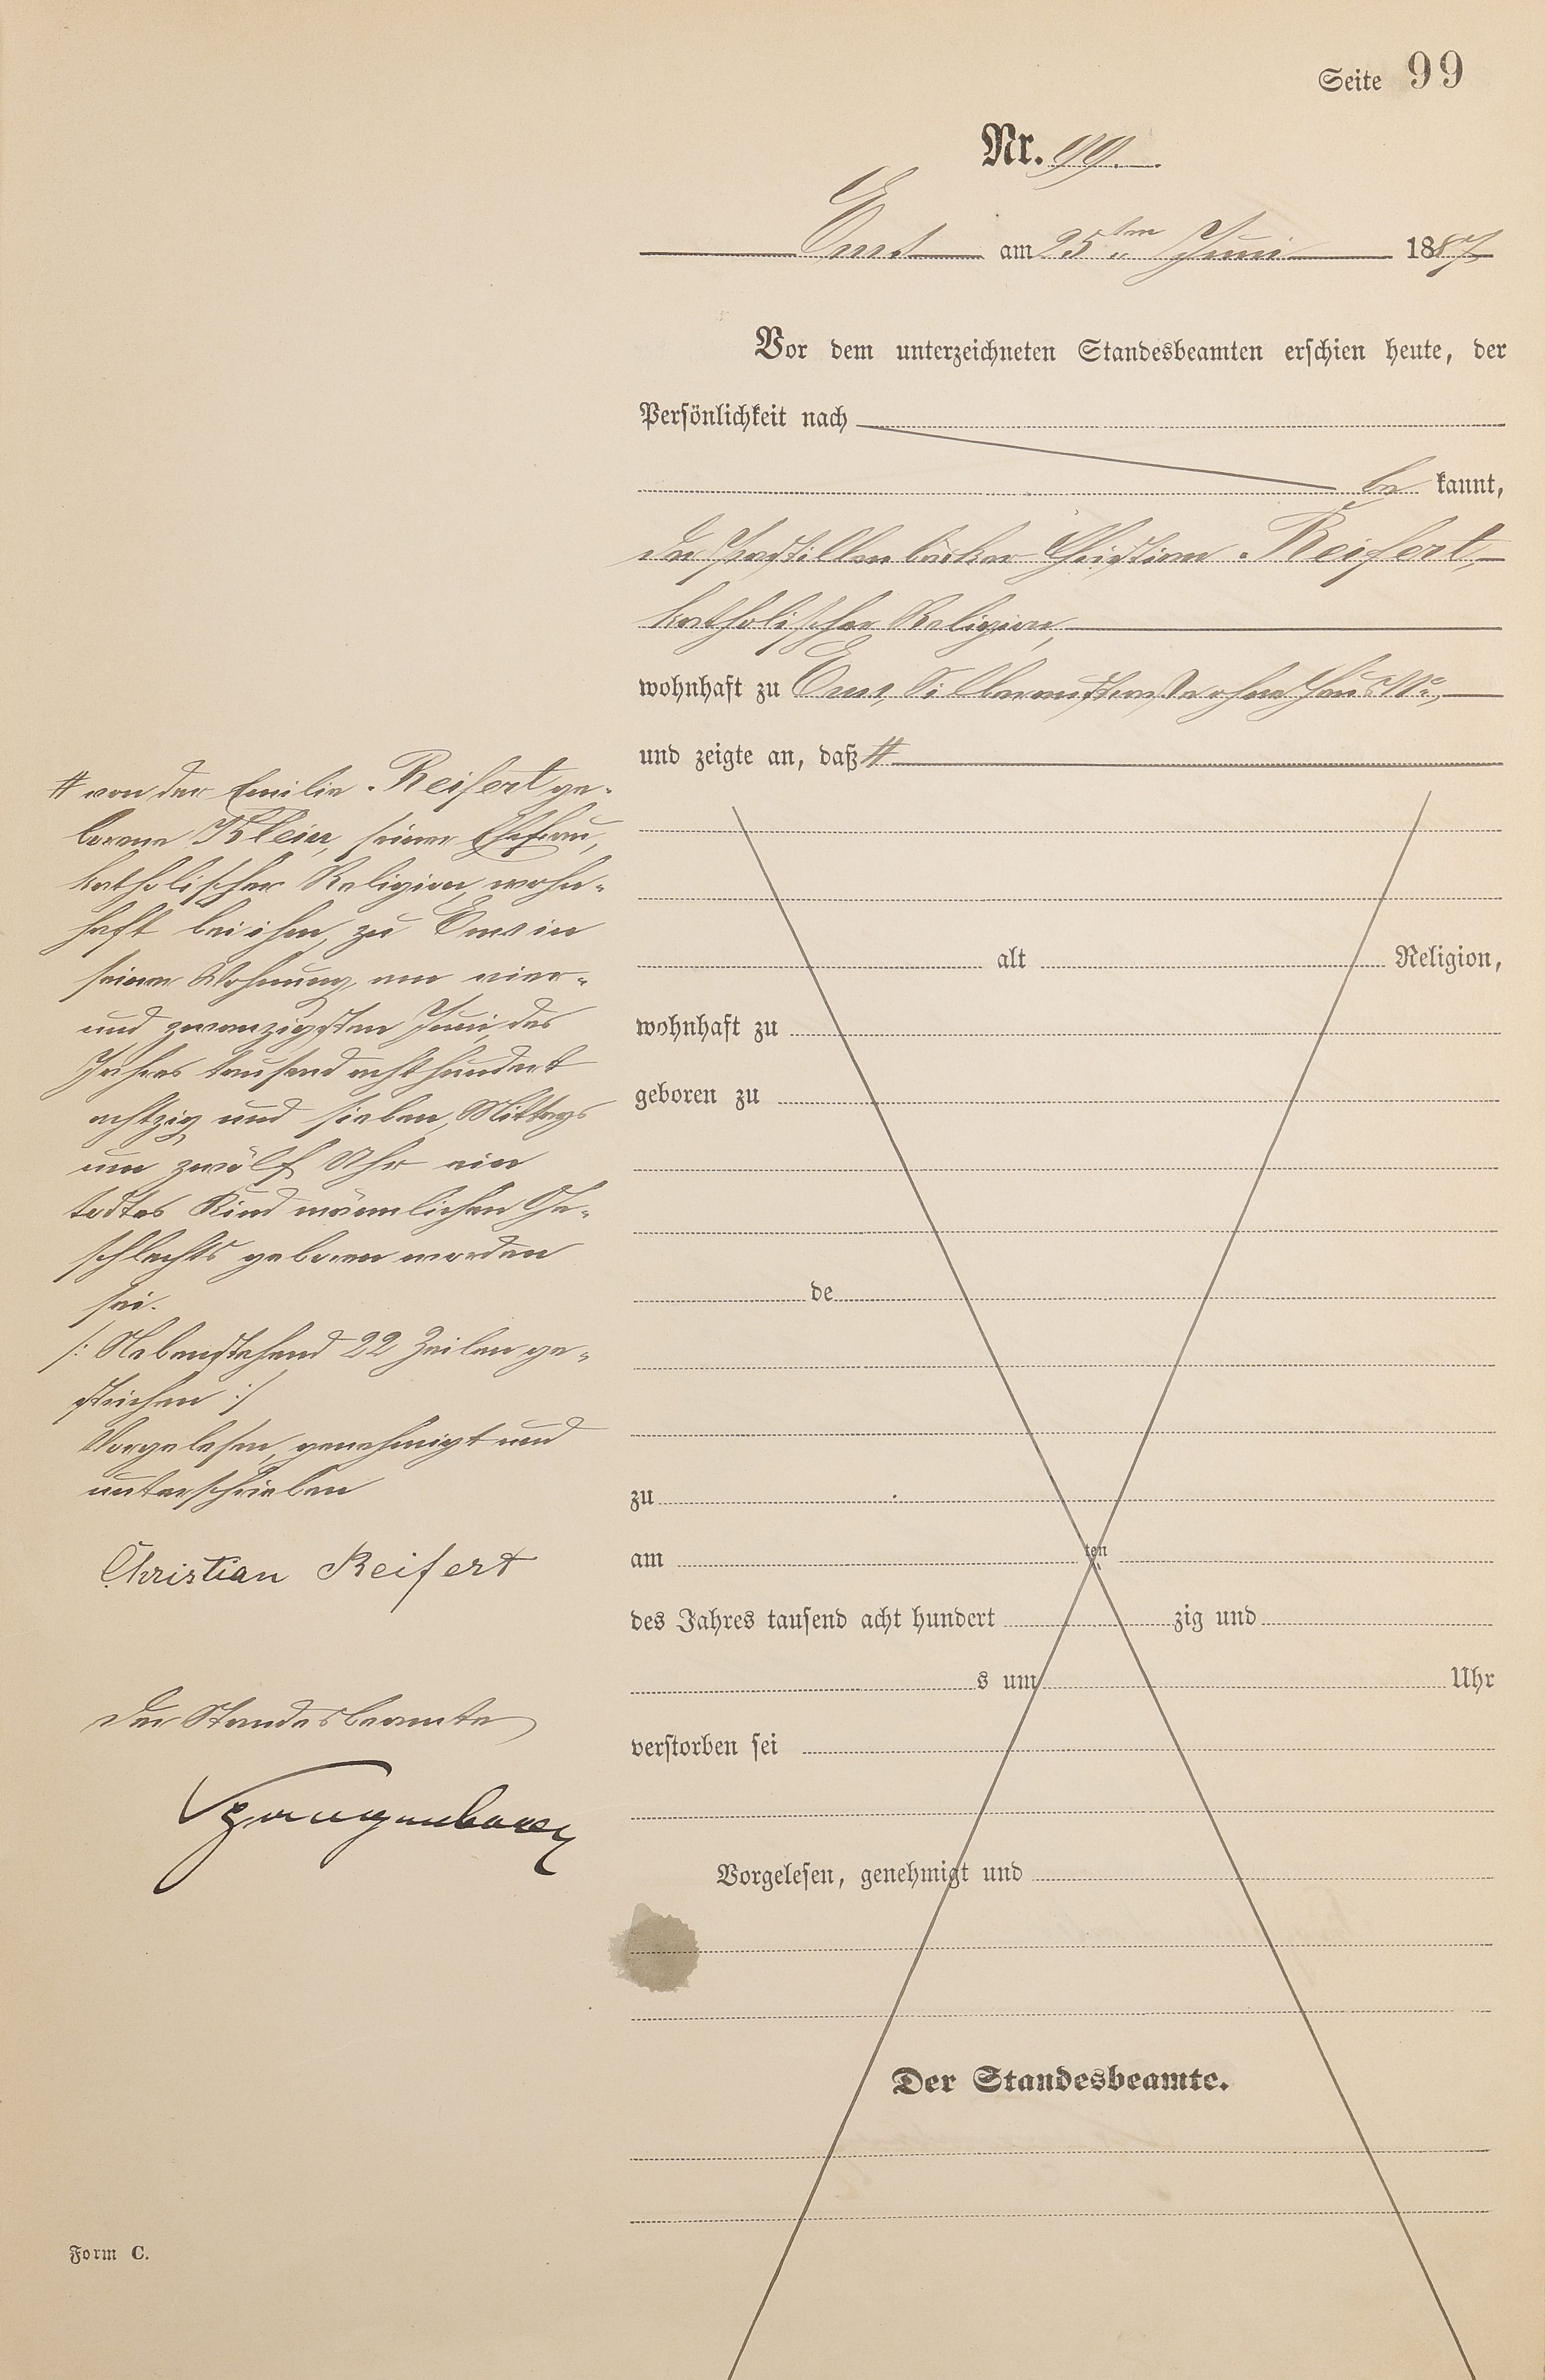 Seite 99
Nr. 99.
Ems am 25ten Juni 1887
Vor dem unterzeichneten Standesbeamten erschien heute, der
Persönlichkeit nach
be kannt,
der Pastillenbäcker Christian Reifert,
katholischer Religion,
wohnhaft zu Ems, Silberaustraße ohne Haus No,
und zeigte an, daß #
# von der Emilie Reifert ge-
borene Klein, seiner Ehefrau,
katholischer Religion, wohn-
haft bei ihm, zu Ems in
seiner Wohnung, am vier-
und zwanzigsten Juni des
Jahres tausend acht hundert
achtzig und sieben, Mittags
um zwölf Uhr ein
todtes Kind männlichen Ge-
schlechts geboren worden
sei.
/: Nebenstehend 22 Zeilen ge-
strichen :/
Vorgelesen, genehmigt und
unterschrieben
Christian Reifert
Der Standesbeamte
alt Religion,
wohnhaft zu
geboren zu
de
zu
am ten
des Jahres tausend acht hundert zig und
s um Uhr
verstorben sei
Vorgelesen, genehmigt und
Der Standesbeamte.
Form C.